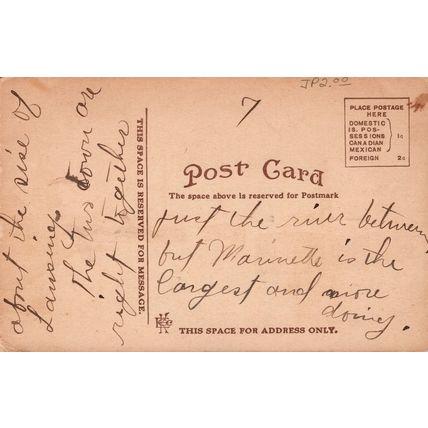 JP2.00
7
PLACE POSTAGE
HERE
DOMESTIC
IS. POS-
SESSIONS
CANADIAN
MEXICAN
1c
FOREIGN 2c
Post Card
The space above is reserved for Postmark
THIS SPACE IS RESERVED FOR MESSAGE.
about the size of
Lansing
The two town are
right together
just the river between
but Marinette is the
largest and more
doing.
THIS SPACE FOR ADDRESS ONLY.